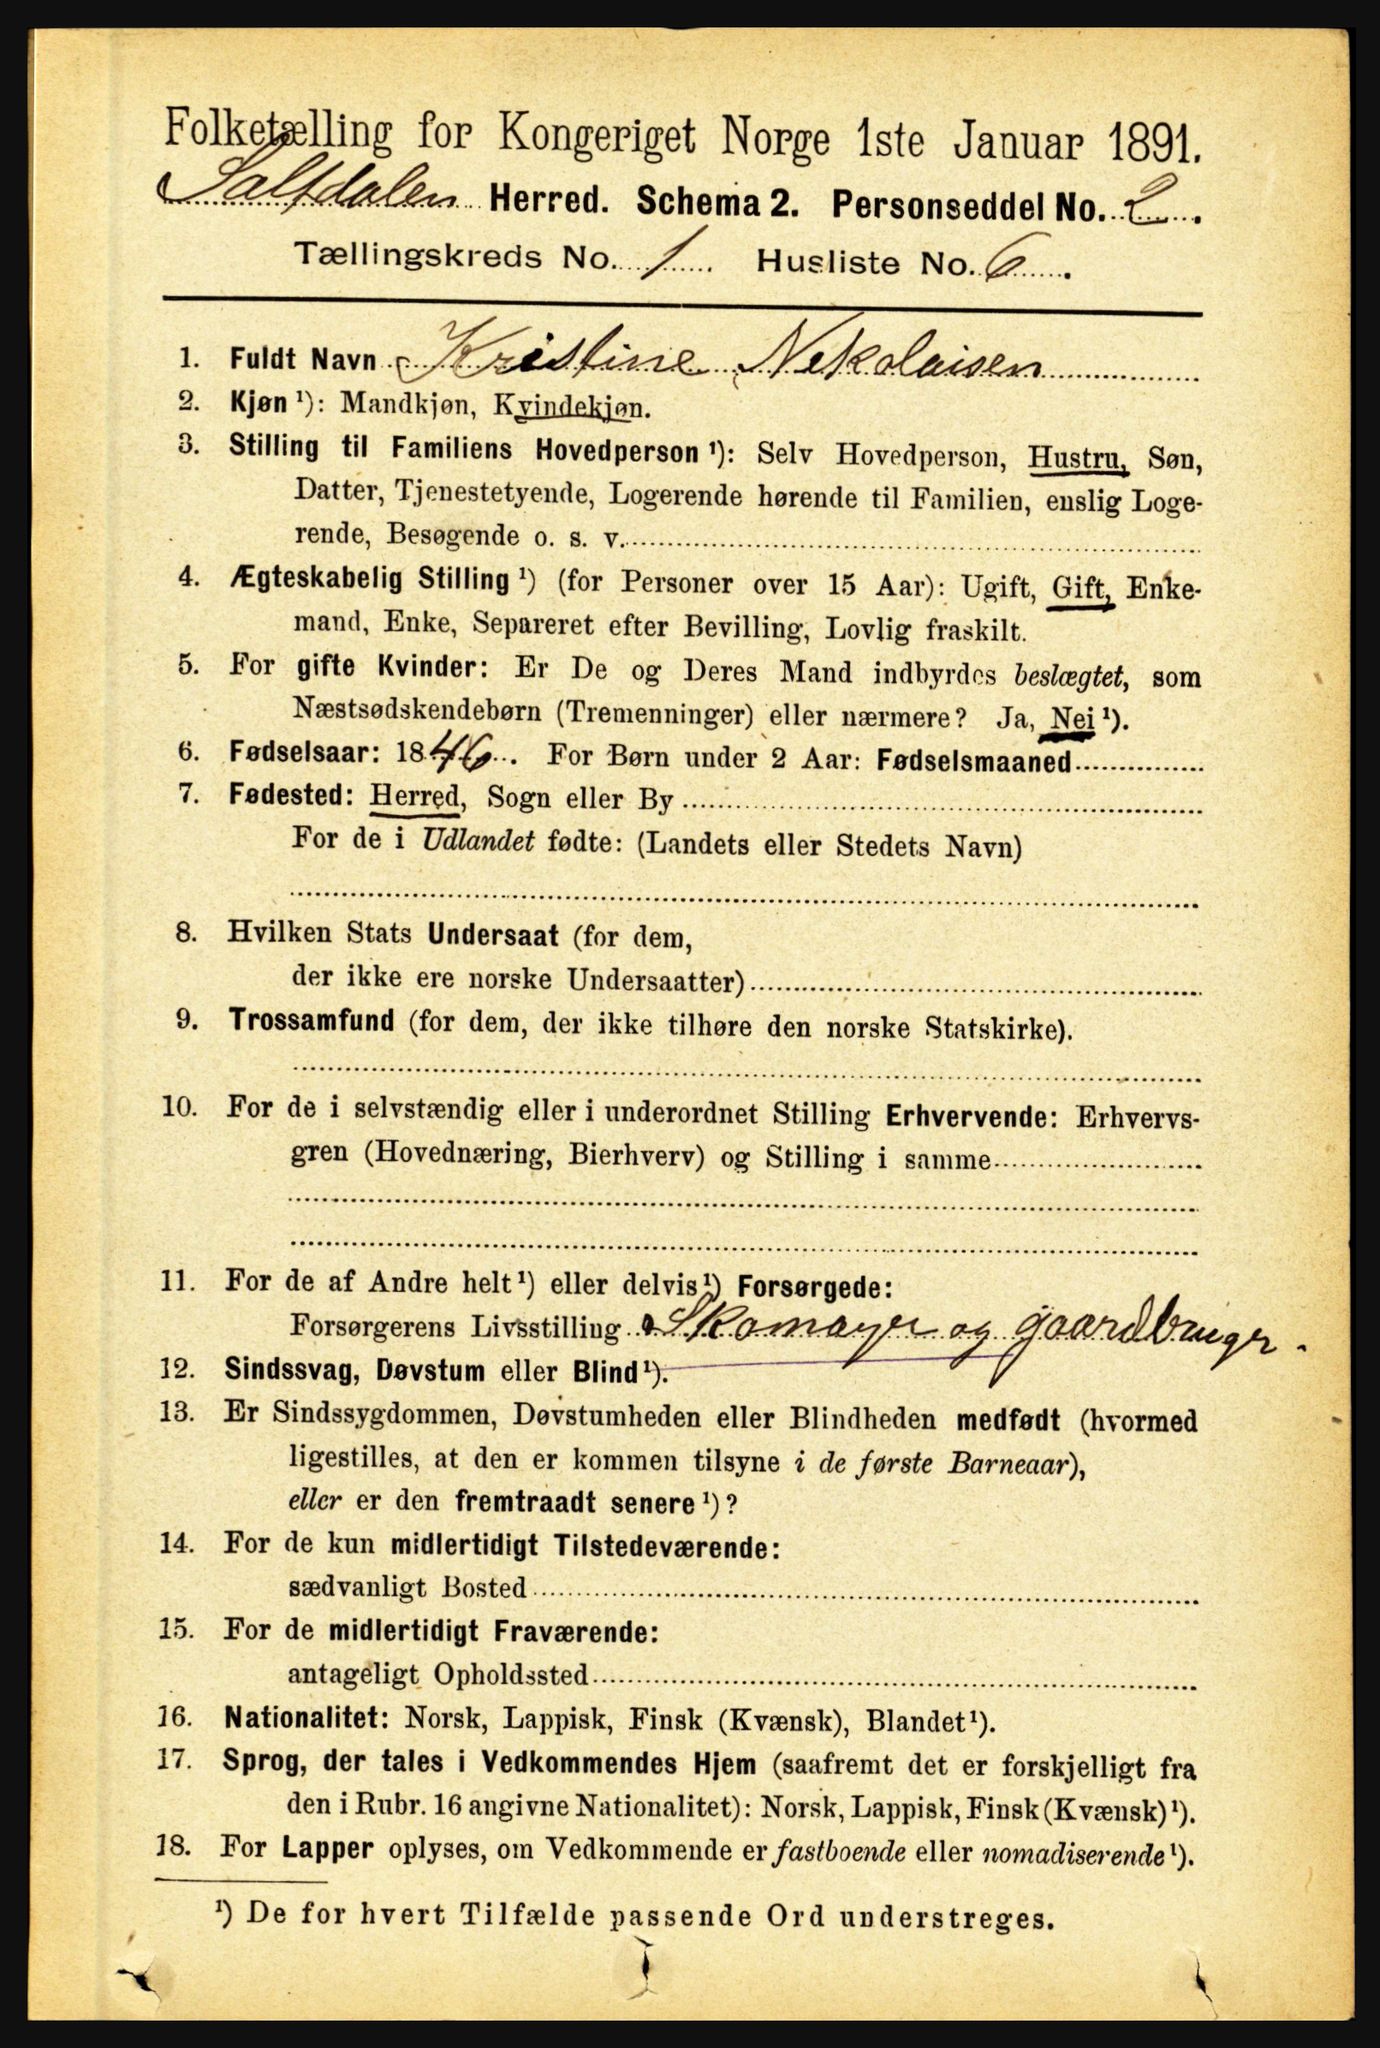 Folketælling for Kongeriget Norge 1ste Januar 1891.
Saltdalen Herred. Schema 2. Personseddel No. 2.
Tællingskreds No. 1 Husliste No. 6.
1. Fuldt Navn Kristine Nekolaisen
2. Kjøn ¹): Mandkjøn, Kvindekjøn.
3. Stilling til Familiens Hovedperson ¹): Selv Hovedperson, Hustru, Søn,
Datter, Tjenestetyende, Logerende hørende til Familien, enslig Loge-
rende, Besøgende o. s. v.
4. Ægteskabelig Stilling ¹) (for Personer over 15 Aar): Ugift, Gift, Enke-
mand, Enke, Separeret efter Bevilling, Lovlig fraskilt.
5. For gifte Kvinder: Er De og Deres Mand indbyrdes beslægtet, som
Næstsødskendebørn (Tremenninger) eller nærmere? Ja, Nei ¹).
6. Fødselsaar: 1846. For Børn under 2 Aar: Fødselsmaaned
7. Fødested: Herred, Sogn eller By
For de i Udlandet fødte: (Landets eller Stedets Navn)
8. Hvilken Stats Undersaat (for dem,
der ikke ere norske Undersaatter)
9. Trossamfund (for dem, der ikke tilhøre den norske Statskirke).
10. For de i selvstændig eller i underordnet Stilling Erhvervende: Erhvervs-
gren (Hovednæring, Bierhverv) og Stilling i samme
11. For de af Andre helt ¹) eller delvis ¹) Forsørgede:
Forsørgerens Livsstilling Skomager og gaardbruger.
12. Sindssvag, Døvstum eller Blind ¹).
13. Er Sindssygdommen, Døvstumheden eller Blindheden medfødt (hvormed
ligestilles, at den er kommen tilsyne i de første Barneaar),
eller er den fremtraadt senere ¹)?
14. For de kun midlertidigt Tilstedeværende:
sædvanligt Bosted
15. For de midlertidigt Fraværende:
antageligt Opholdssted
16. Nationalitet: Norsk, Lappisk, Finsk (Kvænsk), Blandet ¹).
17. Sprog, der tales i Vedkommendes Hjem (saafremt det er forskjelligt fra
den i Rubr. 16 angivne Nationalitet): Norsk, Lappisk, Finsk (Kvænsk) ¹).
18. For Lapper oplyses, om Vedkommende er fastboende eller nomadiserende ¹).
¹) De for hvert Tilfælde passende Ord understreges.